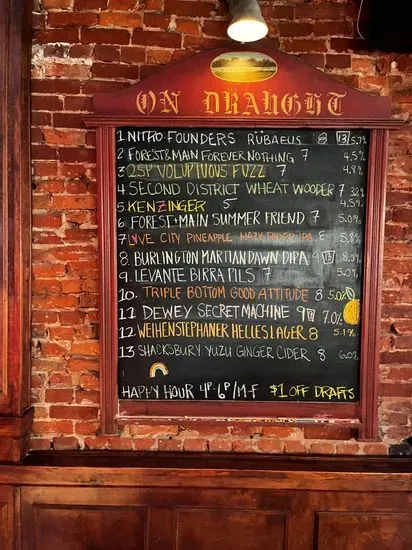 ON DRAUGHT
1 NITRO: FOUNDERS RÜBAEUS 8 13 5.7%
2 FOREST & MAIN FOREVER NOTHING 7 4.5%
3 2SP VOLUPTUOUS FUZZ 7 4.8%
4 SECOND DISTRICT WHEAT WOODER 7
5 KENZINGER 5 4.5%
6 FOREST + MAIN SUMMER FRIEND 7 5.0%
7 LOVE CITY PINEAPPLE HAZY RIDER IPA 8 5.8%
8. BURLINGTON MARTIAN DAWN DIPA 9 13
9. LEVANTE BIRRA PILS 7 5.0%
10. TRIPLE BOTTOM GOOD ATTITUDE 8 5.0%
11 DEWEY SECRET MACHINE 9 7.0%
12 WEIHENSTEPHANER HELLES LAGER 8 5.1%
13 SHACKSBURY YUZU GINGER CIDER 8 6.0%
HAPPY HOUR 4P-6P/M-F $1 OFF DRAFTS